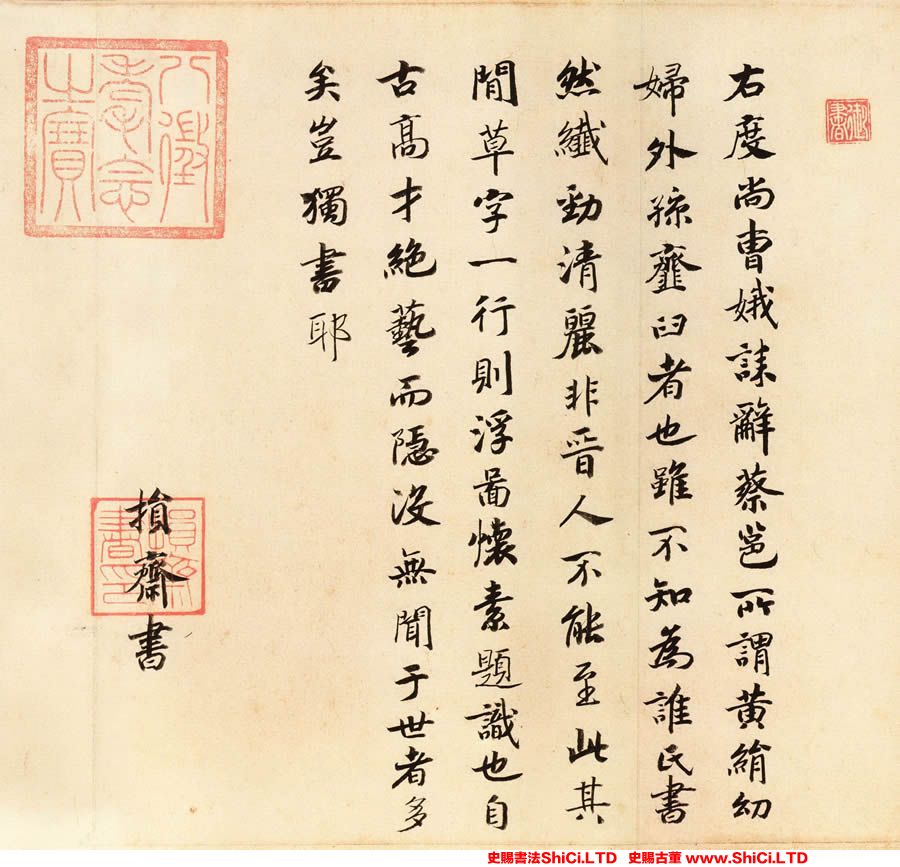 御書
右度尚曹娥誄辭蔡邕所謂黄絹幼
婦外孫虀臼者也雖不知為誰氏書
然纖勁清麗非晉人不能至此其
閒草字一行則浮圖懷素題識也自
古高才絶藝而隱没無聞于世者多
矣豈獨書耶
損齋書
損齋書印
八徵耄念之寶
史賜書法ShiCi.LTD 史賜古董 www.ShiCi.LTD